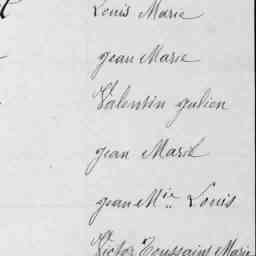 Louis Marie
jean Marie
Valentin julien
jean Marie
jean Mie Louis
Victor Toussaint Marie